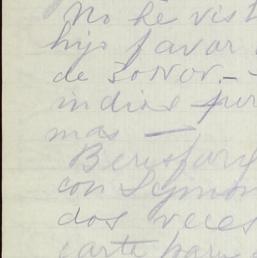 No he vist
hijo favor
de Sonor.-
indios fur
mas —
Beresford
con Symon
dos veces
carta para